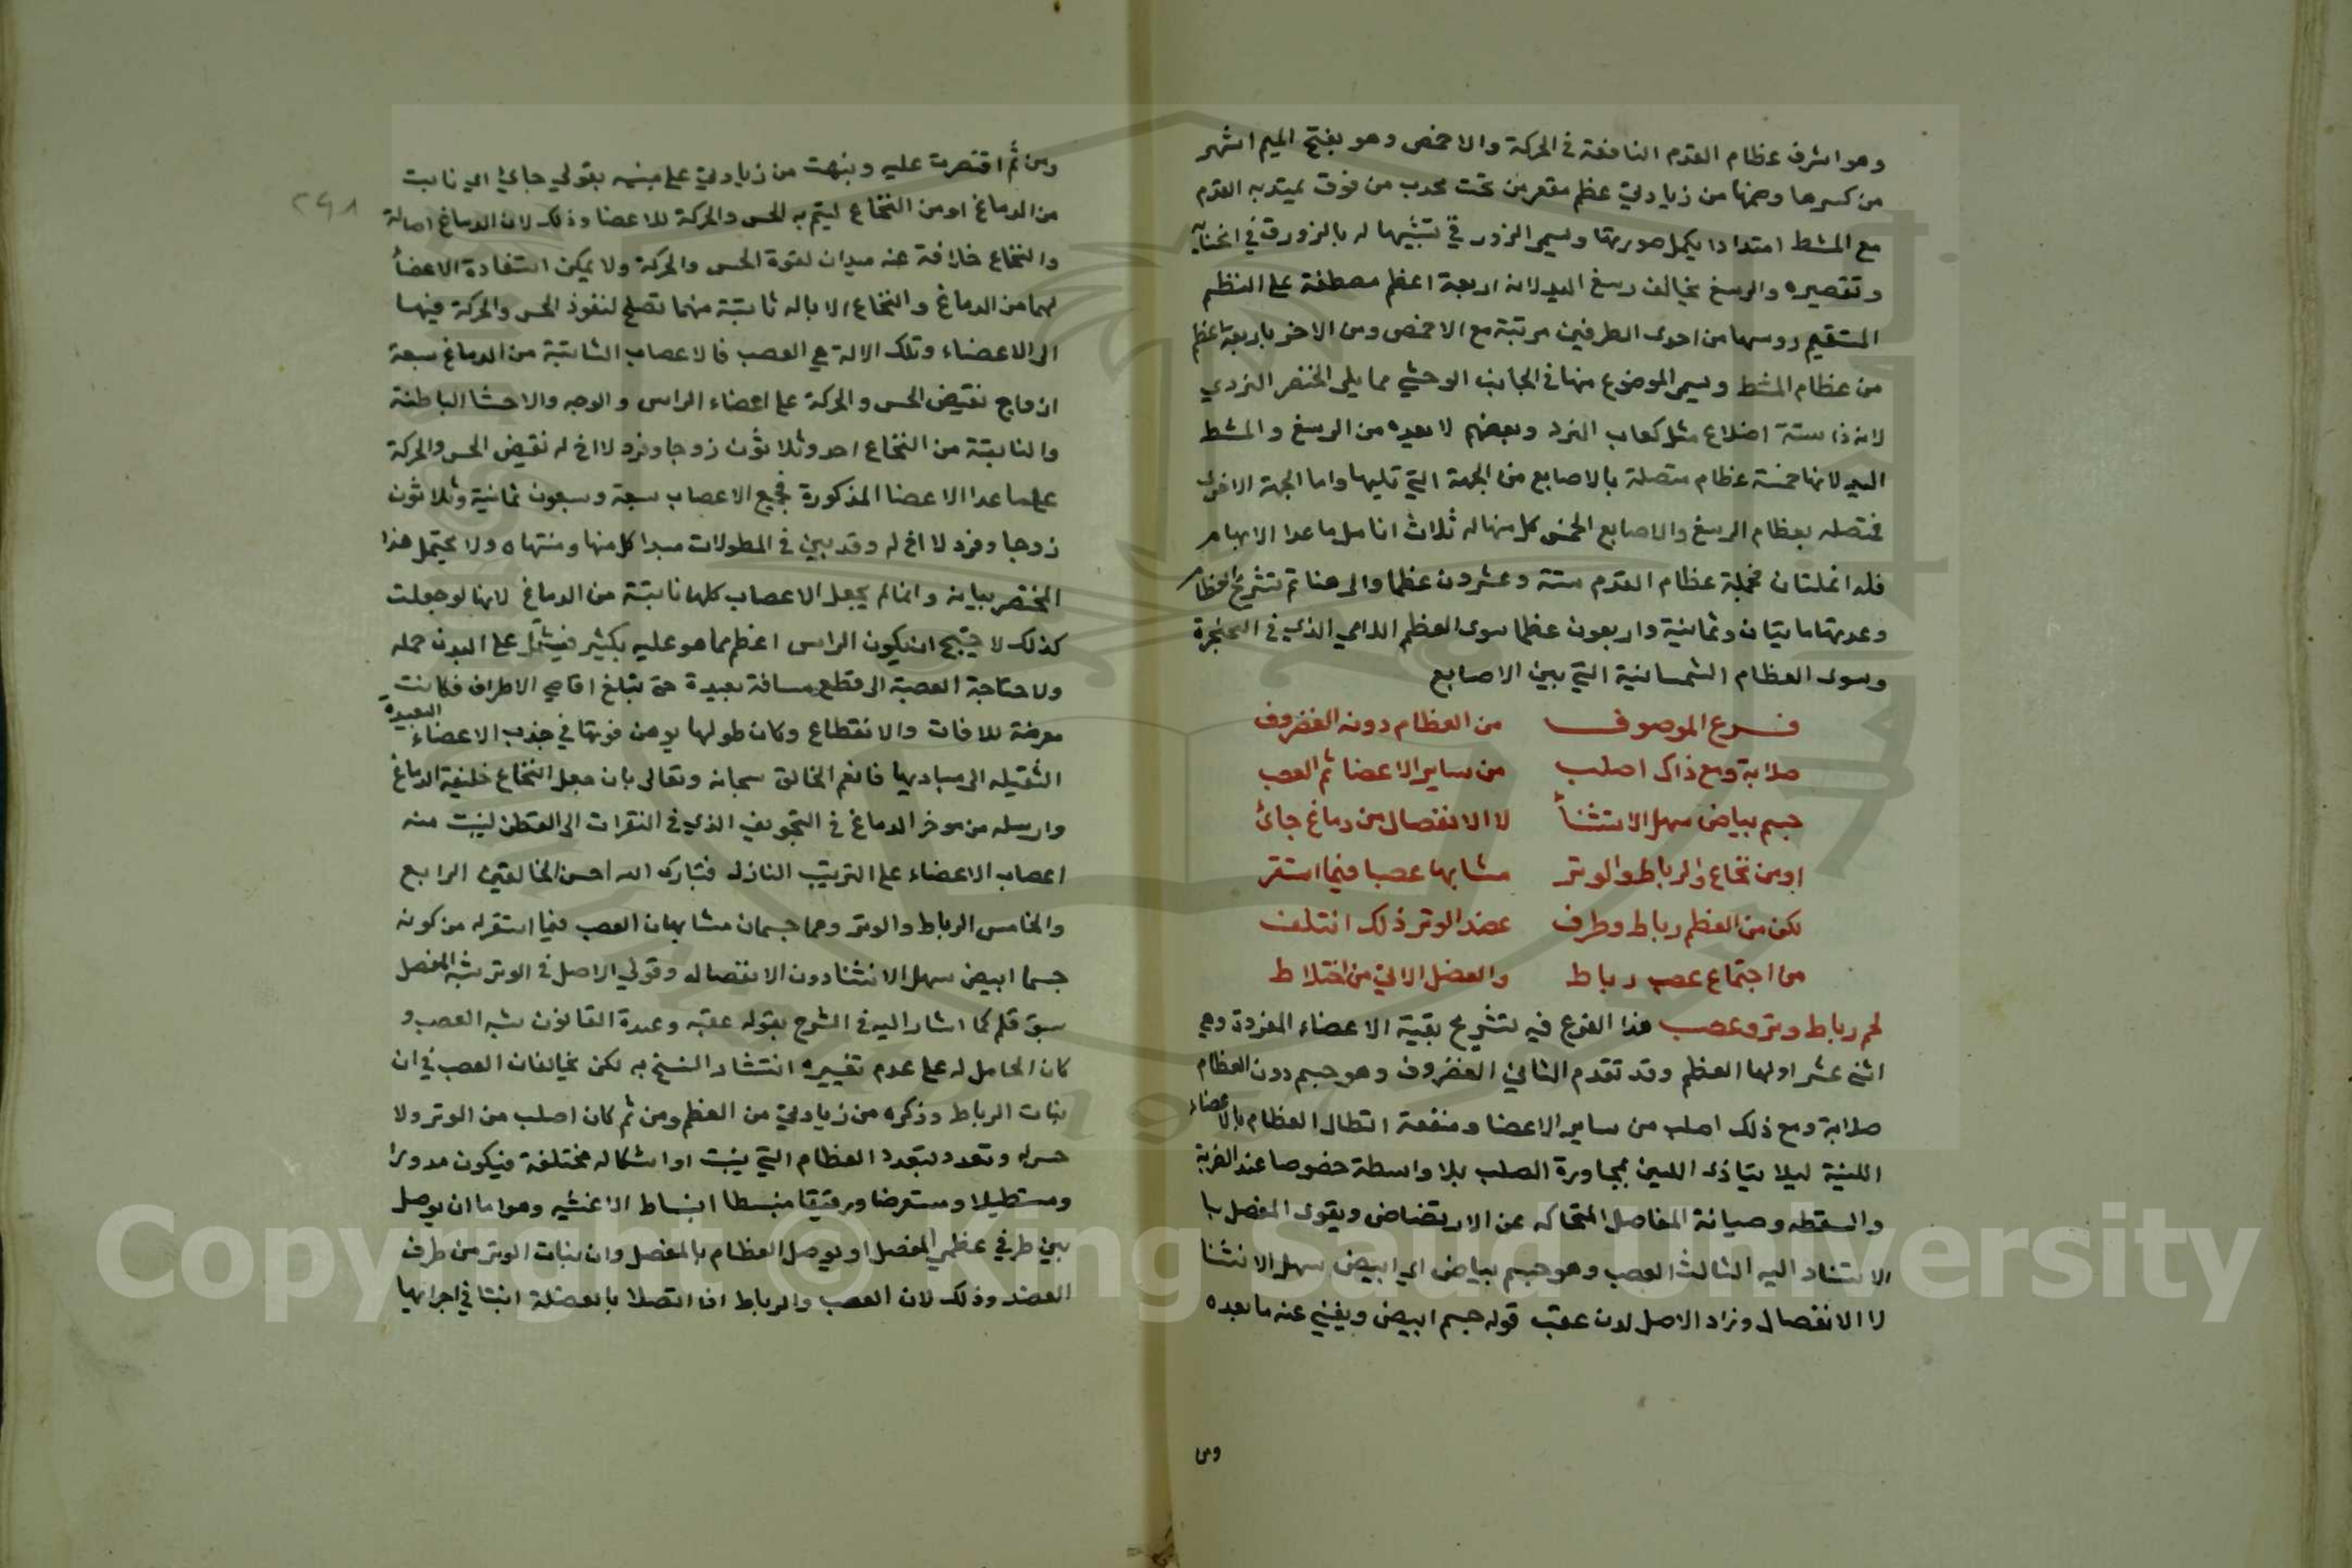 وهو اشرف عظام القدم النافعة في الحركة والاخمص وهو بفتح الميم اشهر
من كسرها وضمها من زيادتي عظم مقعر من تحت محدب من فوق يمتد به القدم
مع المشط امتدادا يكمل صورتها ويسمى الزورقي تشبيها له بالزورق في انحنايه
وتقصيره والرسغ يخالف رسغ اليد لانه اربعة اعظم مصطفة على النظم
المستقيم روسها من احدى الطرفين مرتبة مع الاخمص ومن الاخر باربعة اعظم
من عظام المشط ويسمى الموضوع منها في الجانب الوحشي مما يلي الخنصر النردي
لانه ذا ستة اضلاع مثل كعاب النرد وبعضهم لا يعده من الرسغ والمشط
اليد لانها خمسة عظام متصلة بالاصابع من الجهة التي تليها واما الجهة الاخرى
فتصله بعظام الرسغ والاصابع الخمس كل منها له ثلاث انامل ما عدا الابهام
فله انملتان فجملة عظام القدم ستة وعشرون عظما والى هنا تم تشريح العظام
وعدتها مايتان وثمانية واربعون عظما سوى العظم اللامي الذي في الحنجرة
وسوى العظام السمسانية التي بين الاصابع
فرع الموصوف من العظام دونه الغضروف
صلابة ومع ذاك اصلب من ساير الاعضا ثم العصب
جسم بياض سهل الانثناء لا الانفصال من دماغ جائ
او من نخاع والرباط والوتر مشابها عصبا فيما استقر
لكن من العظم رباط وطرف عضد الوتر ذلك ائتلف
من اجتماع عصب رباط والعضل الاتي من اختلاط
لحم رباط وتر وعصب هذا الفرع فيه لتشريح بقية الاعضاء المفردة وهي
اثنى عشر اولها العظم وقد تقدم الثاني الغضروف وهو جسم دون العظام
صلابة ومع ذلك اصلب من ساير الاعضا ومنفعة اتصال العظام بالاعضاء
اللينة ليلا يتاذى اللين بمجاورة الصلب بلا واسطة خصوصا عند الضربة
والسقطه وصيانة المفاصل المتحاكه عن الارتضاض ويقوى المفصل با
لاستناد اليه الثالث العصب وهو جسم بياض اي ابيض سهل الانثنا
لا الانفصال وزاد الاصل لدن عقب قوله جسم ابيض ويغني عنه ما بعده
ومن
ومن ثم اقتصرت عليه ونبهت من زيادتي على مبنيه بقولي جائ اي نابت
٢٩١
من الدماغ او من النخاع ليتم به الحس والحركة للاعضا وذلك لان الدماغ اصالة
والنخاع خلافة عنه مبدان لقوة الحس والحركة ولا يمكن استفادة الاعضاء
لهما من الدماغ والنخاع الا باله نابتة منهما تصلح لنفوذ الحس والحركة فيها
الى الاعضاء وتلك الالة هي العصب فالاعصاب النابتة من الدماغ سبعة
ازواج تفيض الحس والحركة على اعضاء الراس والوجه والاحشا الباطنة
والنابتة من النخاع احد وثلاثون زوجا وفرد لا اخ له تفيض الحس والحركة
على ما عدا الاعضا المذكورة فجميع الاعصاب سبعة وسبعون ثمانية وثلاثون
زوجا وفرد لا اخ له وقد بين في المطولات مبدا كل منها ومنتهاه ولا يحتمل هذا
المختصر بيانه وانما لم يجعل الاعصاب كلها نابتة من الدماغ لانها لو جعلت
كذلك لاحتيج ان يكون الراس اعظم مما هو عليه بكثير فيثقل على البدن حمله
ولاحتاجة العصبة الى قطع مسافة بعيدة حتى تبلغ اقاصي الاطراف فكانت
معرضة للافات والانقطاع وكان طولها يوهن قوتها في جذب الاعضاء البعيدة
الثقيله الى مباديها فانعم الخالق سبحانه وتعالى بان جعل النخاع خليفة الدماغ
وارسله من موخر الدماغ في التجويف الذي في الفقرات الى القطن لينبت منه
اعصاب الاعضاء على الترتيب النازل فتبارك الله احسن الخالقين الرابع
والخامس الرباط والوتر وهما جسمان مشابهان العصب فيما استقر له من كونه
جسما ابيض سهل الانثنا دون الانفصال وقولي الاصل في الوتر يشبه المفصل
سبق قلم كما اشار اليه في الشرح بقوله عقبه وعبدة القانون يشبه العصب و
كان الحامل له على عدم تغييره انتشار النسخ به لكن يخالفان العصب في ان
نبات الرباط وذكره من زيادتي من العظم ومن ثم كان اصلب من الوتر ولا
حس له وتعدد بتعدد العظام التي ينبت او اشكاله مختلفة فيكون مدورا
ومستطيلا ومستعرضا ورقيقا منبسطا انبساط الاغشيه وهو اما ان يوصل
بين طرفي عظمي المفصل او يوصل العظام بالمفصل وان نبات الوتر من طرف
العضد وذلك لان العصب والرباط اذا اتصلا بالعضلة انبثا في اجزائها
Copyright © King Saud University